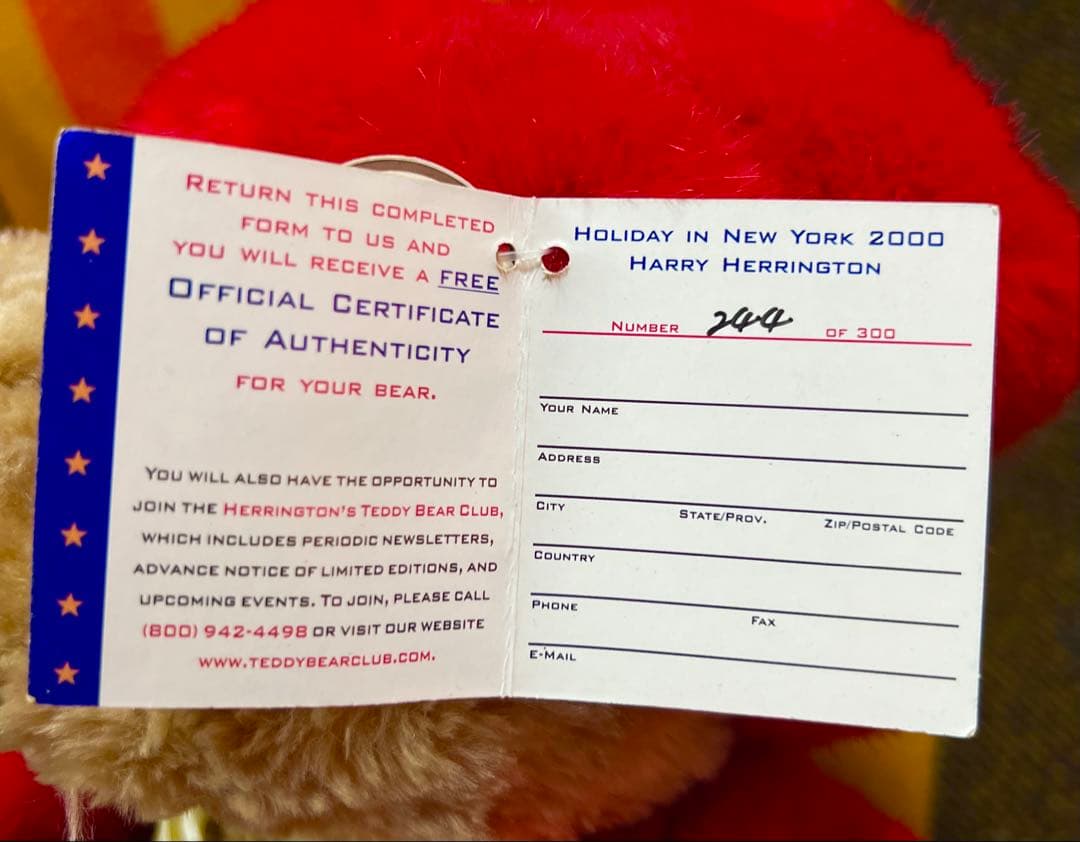 RETURN THIS COMPLETED
FORM TO US AND
YOU WILL RECEIVE A FREE
OFFICIAL CERTIFICATE
OF AUTHENTICITY
FOR YOUR BEAR.
YOU WILL ALSO HAVE THE OPPORTUNITY TO
JOIN THE HERRINGTON'S TEDDY BEAR CLUB,
WHICH INCLUDES PERIODIC NEWSLETTERS,
ADVANCE NOTICE OF LIMITED EDITIONS, AND
UPCOMING EVENTS. TO JOIN, PLEASE CALL
(800) 942-4498 OR VISIT OUR WEBSITE
WWW.TEDDYBEARCLUB.COM.
HOLIDAY IN NEW YORK 2000
HARRY HERRINGTON
NUMBER 244 OF 300
YOUR NAME
ADDRESS
CITY STATE/PROV. ZIP/POSTAL CODE
COUNTRY
PHONE FAX
E-MAIL